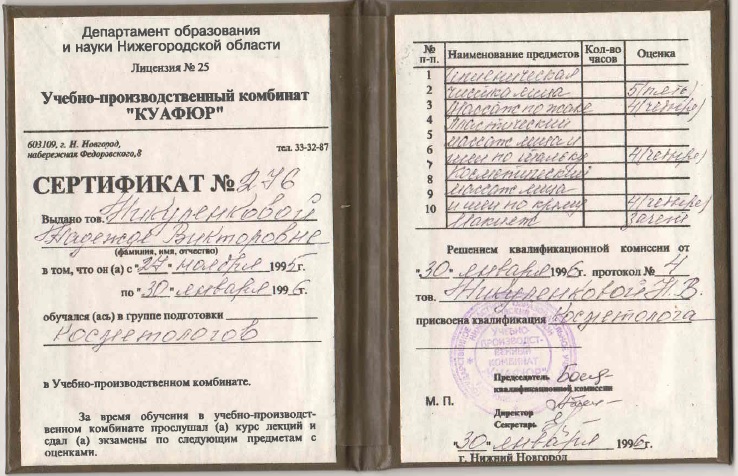 Департамент образования
и науки Нижегородской области
Лицензия № 25
Учебно-производственный комбинат
"КУАФЮР"
603109, г. Н. Новгород,
набережная Федоровского,8
тел. 33-32-87
СЕРТИФИКАТ № 276
Выдано тов. Жикуренковой
Надежде Викторовне
(фамилия, имя, отчество)
в том, что он (а) с "27" ноября 1995г.
по "30" января 1996г.
обучался (ась) в группе подготовки
Косметологов
в Учебно-производственном комбинате.
За время обучения в учебно-производст-
венном комбинате прослушал (а) курс лекций и
сдал (а) экзамены по следующим предметам с
оценками.
№ п-п. Наименование предметов Кол-во часов Оценка
1 Гигиеническая
2 чистка лица 5(пять)
3 Массаж по Жаке 4(четыре)
4 Пластический
5 массаж лица и
6 шеи по тальку 4(четыре)
7 Косметический
8 массаж лица
9 и шеи по крему 4(четыре)
10 Макияж Зачет
Решением квалификационной комиссии от
"30" января 1996г. протокол № 4
тов. Жикуренковой Н.В.
присвоена квалификация Косметолога
УЧЕБНО
ПРОИЗВОДСТ-
ВЕННЫЙ
КОМБИНАТ
Председатель
квалификационной комиссии
М. П.
Директор
Секретарь
"30" января 1996г.
г. Нижний Новгород